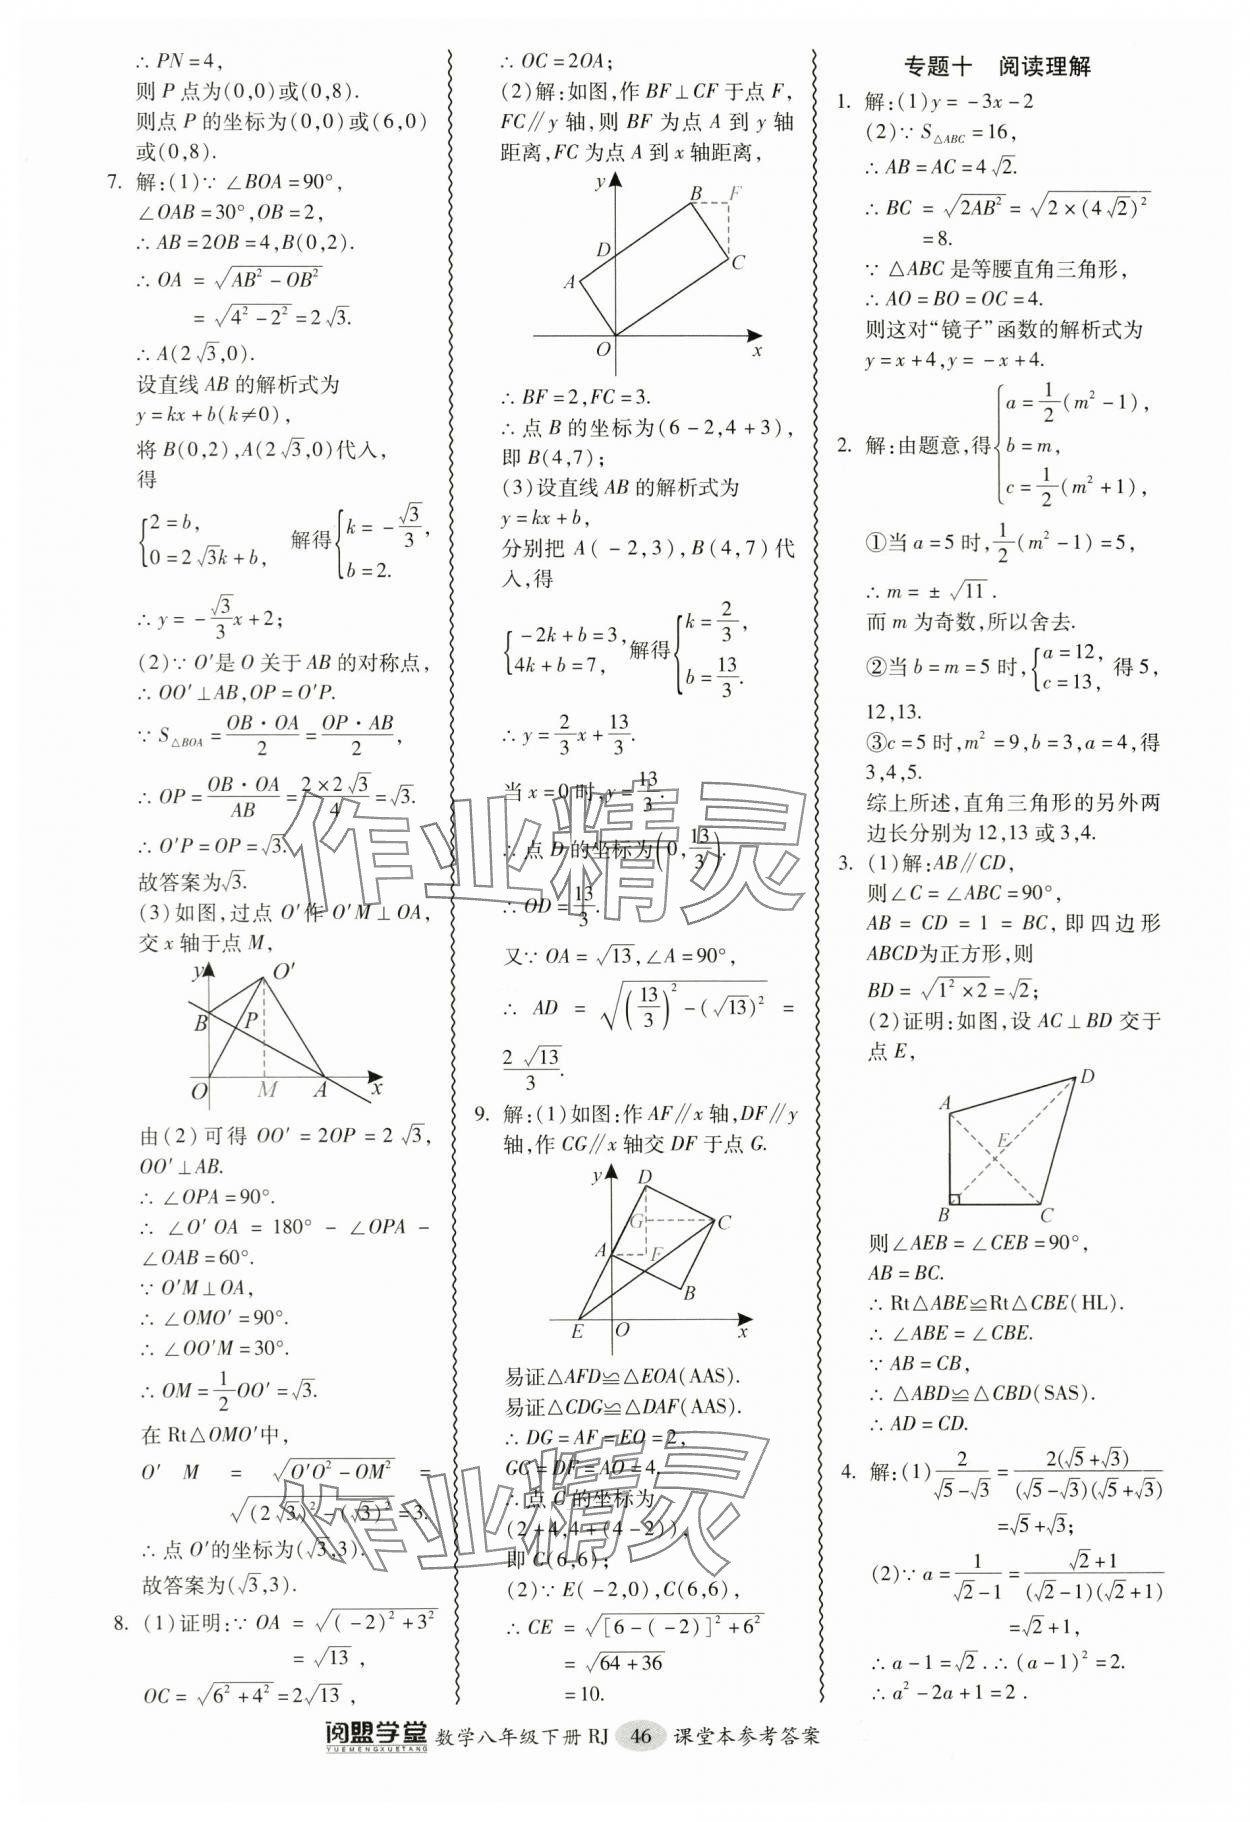 ∴ PN=4,
则 P 点为(0,0)或(0,8).
则点 P 的坐标为(0,0)或(6,0)
或(0,8).
7. 解:(1)∵ ∠BOA=90°,
∠OAB=30°,OB=2,
∴ AB=2OB=4,B(0,2).
∴ OA = √(AB²-OB²)
= √(4²-2²)=2√3.
∴ A(2√3,0).
设直线 AB 的解析式为
y=kx+b(k≠0),
将 B(0,2),A(2√3,0)代入,
得
{2=b, 0=2√3k+b, 解得{k=-√3/3, b=2.
∴ y=-√3/3x+2;
(2)∵ O′是 O 关于 AB 的对称点,
∴ OO′⊥AB,OP=O′P.
∵ S△BOA=OB·OA/2=OP·AB/2,
∴ OP=OB·OA/AB=2×2√3/4=√3.
∴ O′P=OP=√3.
故答案为√3.
(3)如图,过点 O′作 O′M⊥OA,
交 x 轴于点 M,
y O′
B P
O M A x
由(2)可得 OO′=2OP=2√3,
OO′⊥AB.
∴ ∠OPA=90°.
∴ ∠O′OA = 180° - ∠OPA -
∠OAB=60°.
∵ O′M⊥OA,
∴ ∠OMO′=90°.
∴ ∠OO′M=30°.
∴ OM=1/2OO′=√3.
在 Rt△OMO′中,
O′M = √(O′O²-OM²) =
√((2√3)²-(√3)²)=3.
∴ 点 O′的坐标为(√3,3).
故答案为(√3,3).
8. (1)证明:∵ OA = √((-2)²+3²)
= √13,
OC=√(6²+4²)=2√13,
∴ OC=2OA;
(2)解:如图,作 BF⊥CF 于点 F,
FC∥y 轴,则 BF 为点 A 到 y 轴
距离,FC 为点 A 到 x 轴距离,
y B F
D C
A
O x
∴ BF=2,FC=3.
∴ 点 B 的坐标为(6-2,4+3),
即 B(4,7);
(3)设直线 AB 的解析式为
y=kx+b,
分别把 A(-2,3),B(4,7)代
入,得
{-2k+b=3, 4k+b=7, 解得{k=2/3, b=13/3.
∴ y=2/3x+13/3.
当 x=0 时,y=13/3.
∴ 点 D 的坐标为(0,13/3).
∴ OD=13/3.
又∵ OA=√13,∠A=90°,
∴ AD = √((13/3)²-(√13)²) =
2√13/3.
9. 解:(1)如图:作 AF∥x 轴,DF∥y
轴,作 CG∥x 轴交 DF 于点 G.
y D
G C
A F
B
E O x
易证△AFD≌△EOA(AAS).
易证△CDG≌△DAF(AAS).
∴ DG=AF=EO=2,
GC=DF=AO=4.
∴ 点 C 的坐标为
(2+4,4+(4-2)),
即 C(6,6);
(2)∵ E(-2,0),C(6,6),
∴ CE = √([6-(-2)]²+6²)
= √(64+36)
= 10.
专题十 阅读理解
1. 解:(1)y=-3x-2
(2)∵ S△ABC=16,
∴ AB=AC=4√2.
∴ BC = √(2AB²) = √(2×(4√2)²)
=8.
∵ △ABC 是等腰直角三角形,
∴ AO=BO=OC=4.
则这对“镜子”函数的解析式为
y=x+4,y=-x+4.
2. 解:由题意,得{a=1/2(m²-1), b=m, c=1/2(m²+1),
①当 a=5 时,1/2(m²-1)=5,
∴ m=±√11.
而 m 为奇数,所以舍去.
②当 b=m=5 时,{a=12, c=13, 得 5,
12,13.
③c=5 时,m²=9,b=3,a=4,得
3,4,5.
综上所述,直角三角形的另外两
边长分别为 12,13 或 3,4.
3. (1)解:AB∥CD,
则∠C=∠ABC=90°,
AB = CD = 1 = BC,即四边形
ABCD为正方形,则
BD=√(1²×2)=√2;
(2)证明:如图,设 AC⊥BD 交于
点 E,
D
A
E
B C
则∠AEB=∠CEB=90°,
AB=BC.
∴ Rt△ABE≌Rt△CBE(HL).
∴ ∠ABE=∠CBE.
∵ AB=CB,
∴ △ABD≌△CBD(SAS).
∴ AD=CD.
4. 解:(1)2/(√5-√3)=2(√5+√3)/((√5-√3)(√5+√3))
=√5+√3;
(2)∵ a=1/(√2-1)=(√2+1)/((√2-1)(√2+1))
=√2+1,
∴ a-1=√2.∴ (a-1)²=2.
∴ a²-2a+1=2.
作业精灵
作业精灵
阅盟学堂 YUEMENGXUETANG 数学八年级下册 RJ 46 课堂本参考答案